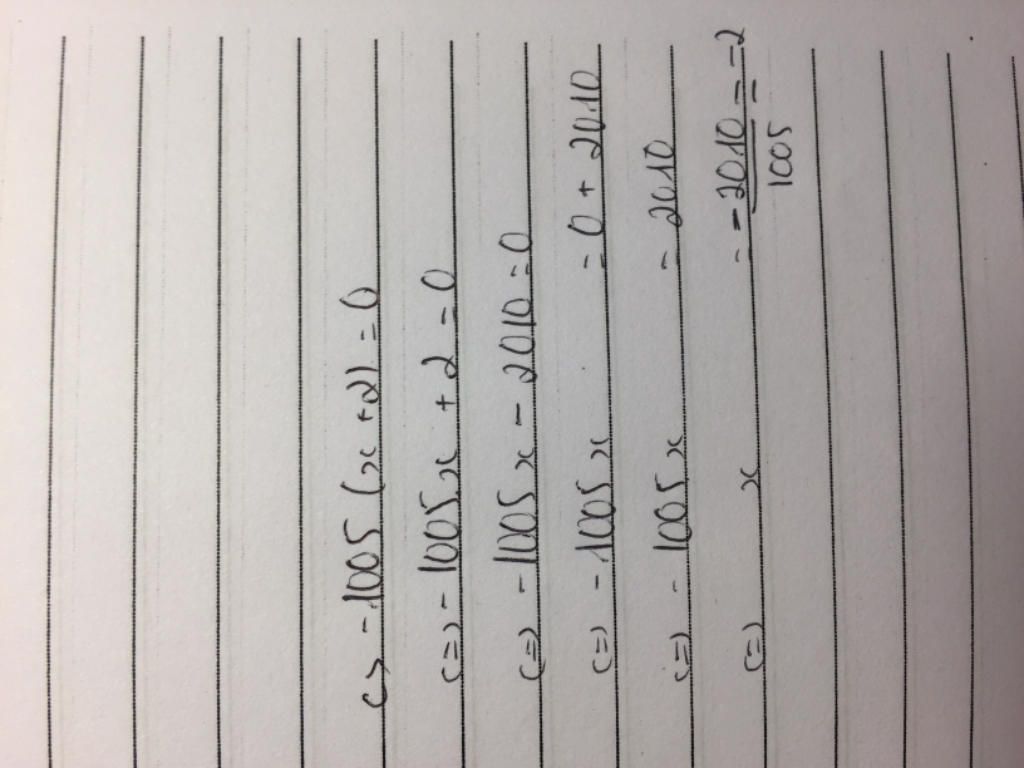 c> -1005 (x + 2) = 0
<=> - 1005.x + 2 = 0
<=> - 1005x - 2010 = 0
<=> - 1005x = 0 + 2010
<=> - 1005.x = 2010
<=> x = - 2010/1005 = -2